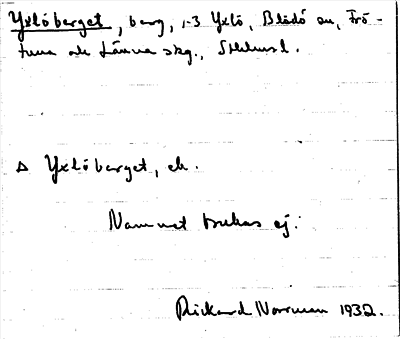 Yxlöberget, berg, 1-3 Yxlö, Blidö sn, Frö-
tuna och Länna skg., Sthlms l.
Δ Yxlöberget, ek.
Namnet brukas ej.
Rickard Norrman 1932.